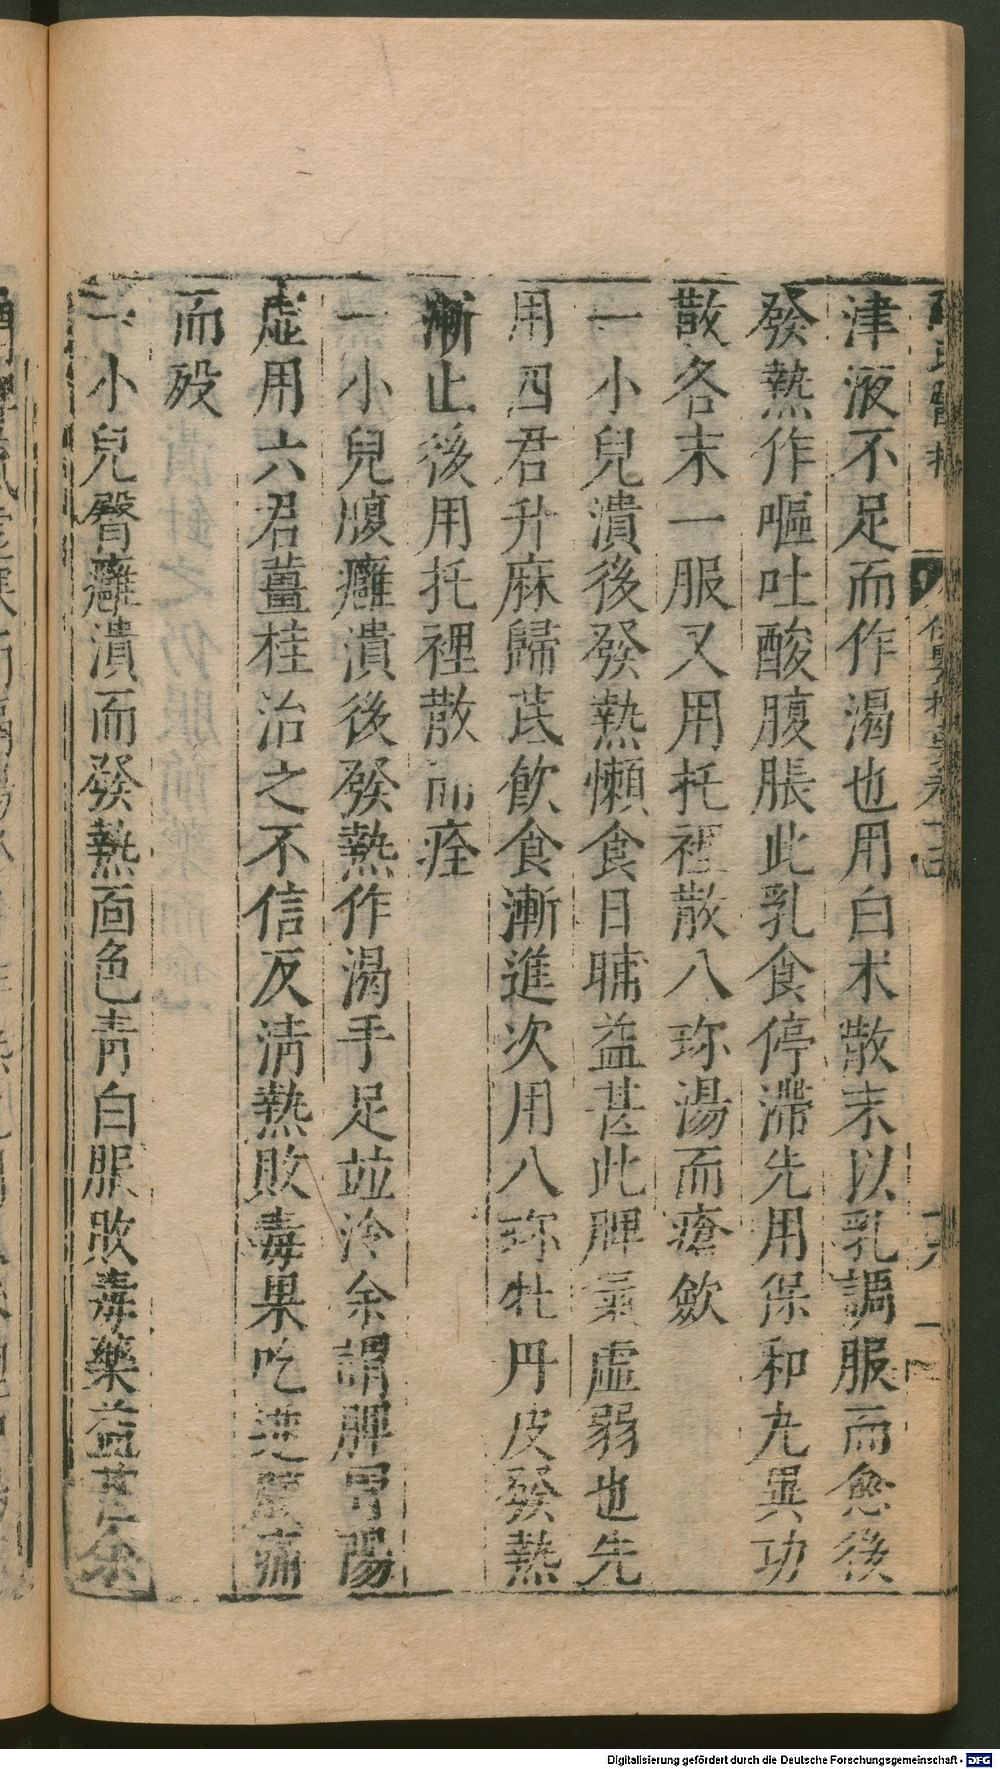 津液不足而作渴也用白朮散末以乳調服而愈後
發熱作嘔吐酸腹脹此乳食停滯先用保和丸異功
散各末一服又用托裡散八珎湯而瘡歛
一小兒潰後發熱懶食日晡益甚此脾氣虛弱也先
用四君升麻歸芪飲食漸進次用八珎牡丹皮發熱
漸止後用托裡散而痊
一小兒腹癰潰後發熱作渴手足並冷余謂脾胃陽
虛用六君薑桂治之不信反淸熱敗毒果吃逆腹痛
而歿
一小兒臀癰潰而發熱面色靑白服敗毒藥益甚余
Digitalisierung gefördert durch die Deutsche Forschungsgemeinschaft - DFG